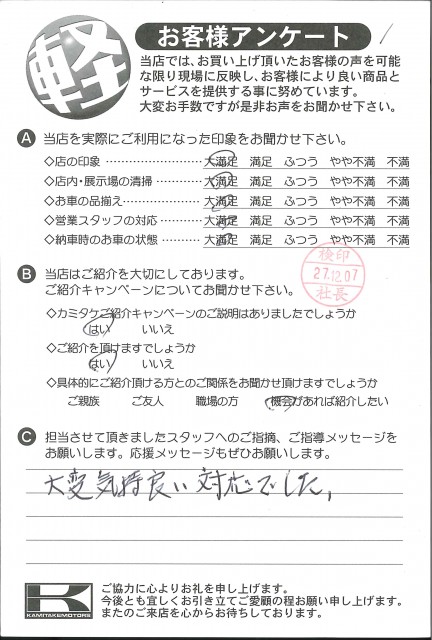 軽
お客様アンケート
当店では、お買い上げ頂いたお客様の声を可能
な限り現場に反映し、お客様により良い商品と
サービスを提供する事に努めています。
大変お手数ですが是非お声をお聞かせ下さい。
A 当店を実際にご利用になった印象をお聞かせ下さい。
◇店の印象 …………………… 大満足 満足 ふつう やや不満 不満
◇店内・展示場の清掃 ………… 大満足 満足 ふつう やや不満 不満
◇お車の品揃え………………… 大満足 満足 ふつう やや不満 不満
◇営業スタッフの対応 ………… 大満足 満足 ふつう やや不満 不満
◇納車時のお車の状態 ………… 大満足 満足 ふつう やや不満 不満
検印
27.12.07
社長
B 当店はご紹介を大切にしております。
ご紹介キャンペーンについてお聞かせ下さい。
◇カミタケご紹介キャンペーンのご説明はありましたでしょうか
はい いいえ
◇ご紹介を頂けますでしょうか
はい いいえ
◇具体的にご紹介頂ける方とのご関係をお聞かせ頂けますでしょうか
ご親族 ご友人 職場の方 機会があれば紹介したい
C 担当させて頂きましたスタッフへのご指摘、ご指導メッセージを
お願いします。応援メッセージもぜひお願いします。
大変気持良い対応でした。
K
KAMITAKEMOTORS
ご協力に心よりお礼を申し上げます。
今後とも宜しくお引き立てご愛顧の程お願い申し上げます。
またのご来店を心からお待ちしております。